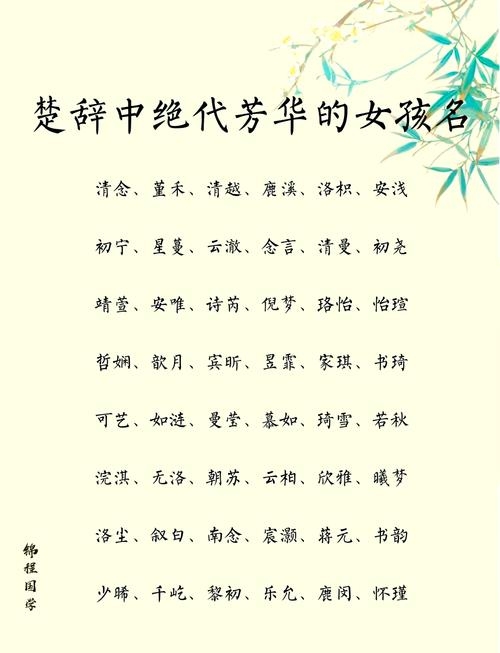 楚辞中绝代芳华的女孩名
清念、堇禾、清越、鹿溪、洛枳、安浅
初宁、星蔓、云澈、念言、清曼、初尧
靖萱、安唯、诗芮、倪梦、珞怡、怡瑄
哲娴、歆月、宾昕、昱霏、家琪、书琦
可艺、如涟、曼莹、慕如、琦雪、若秋
浣淇、无洛、朝苏、云柏、欣雅、曦梦
洛尘、叙白、南念、宸灏、蒋元、书韵
少晞、千屹、黎初、乐允、鹿闵、怀瑾
锦程国学